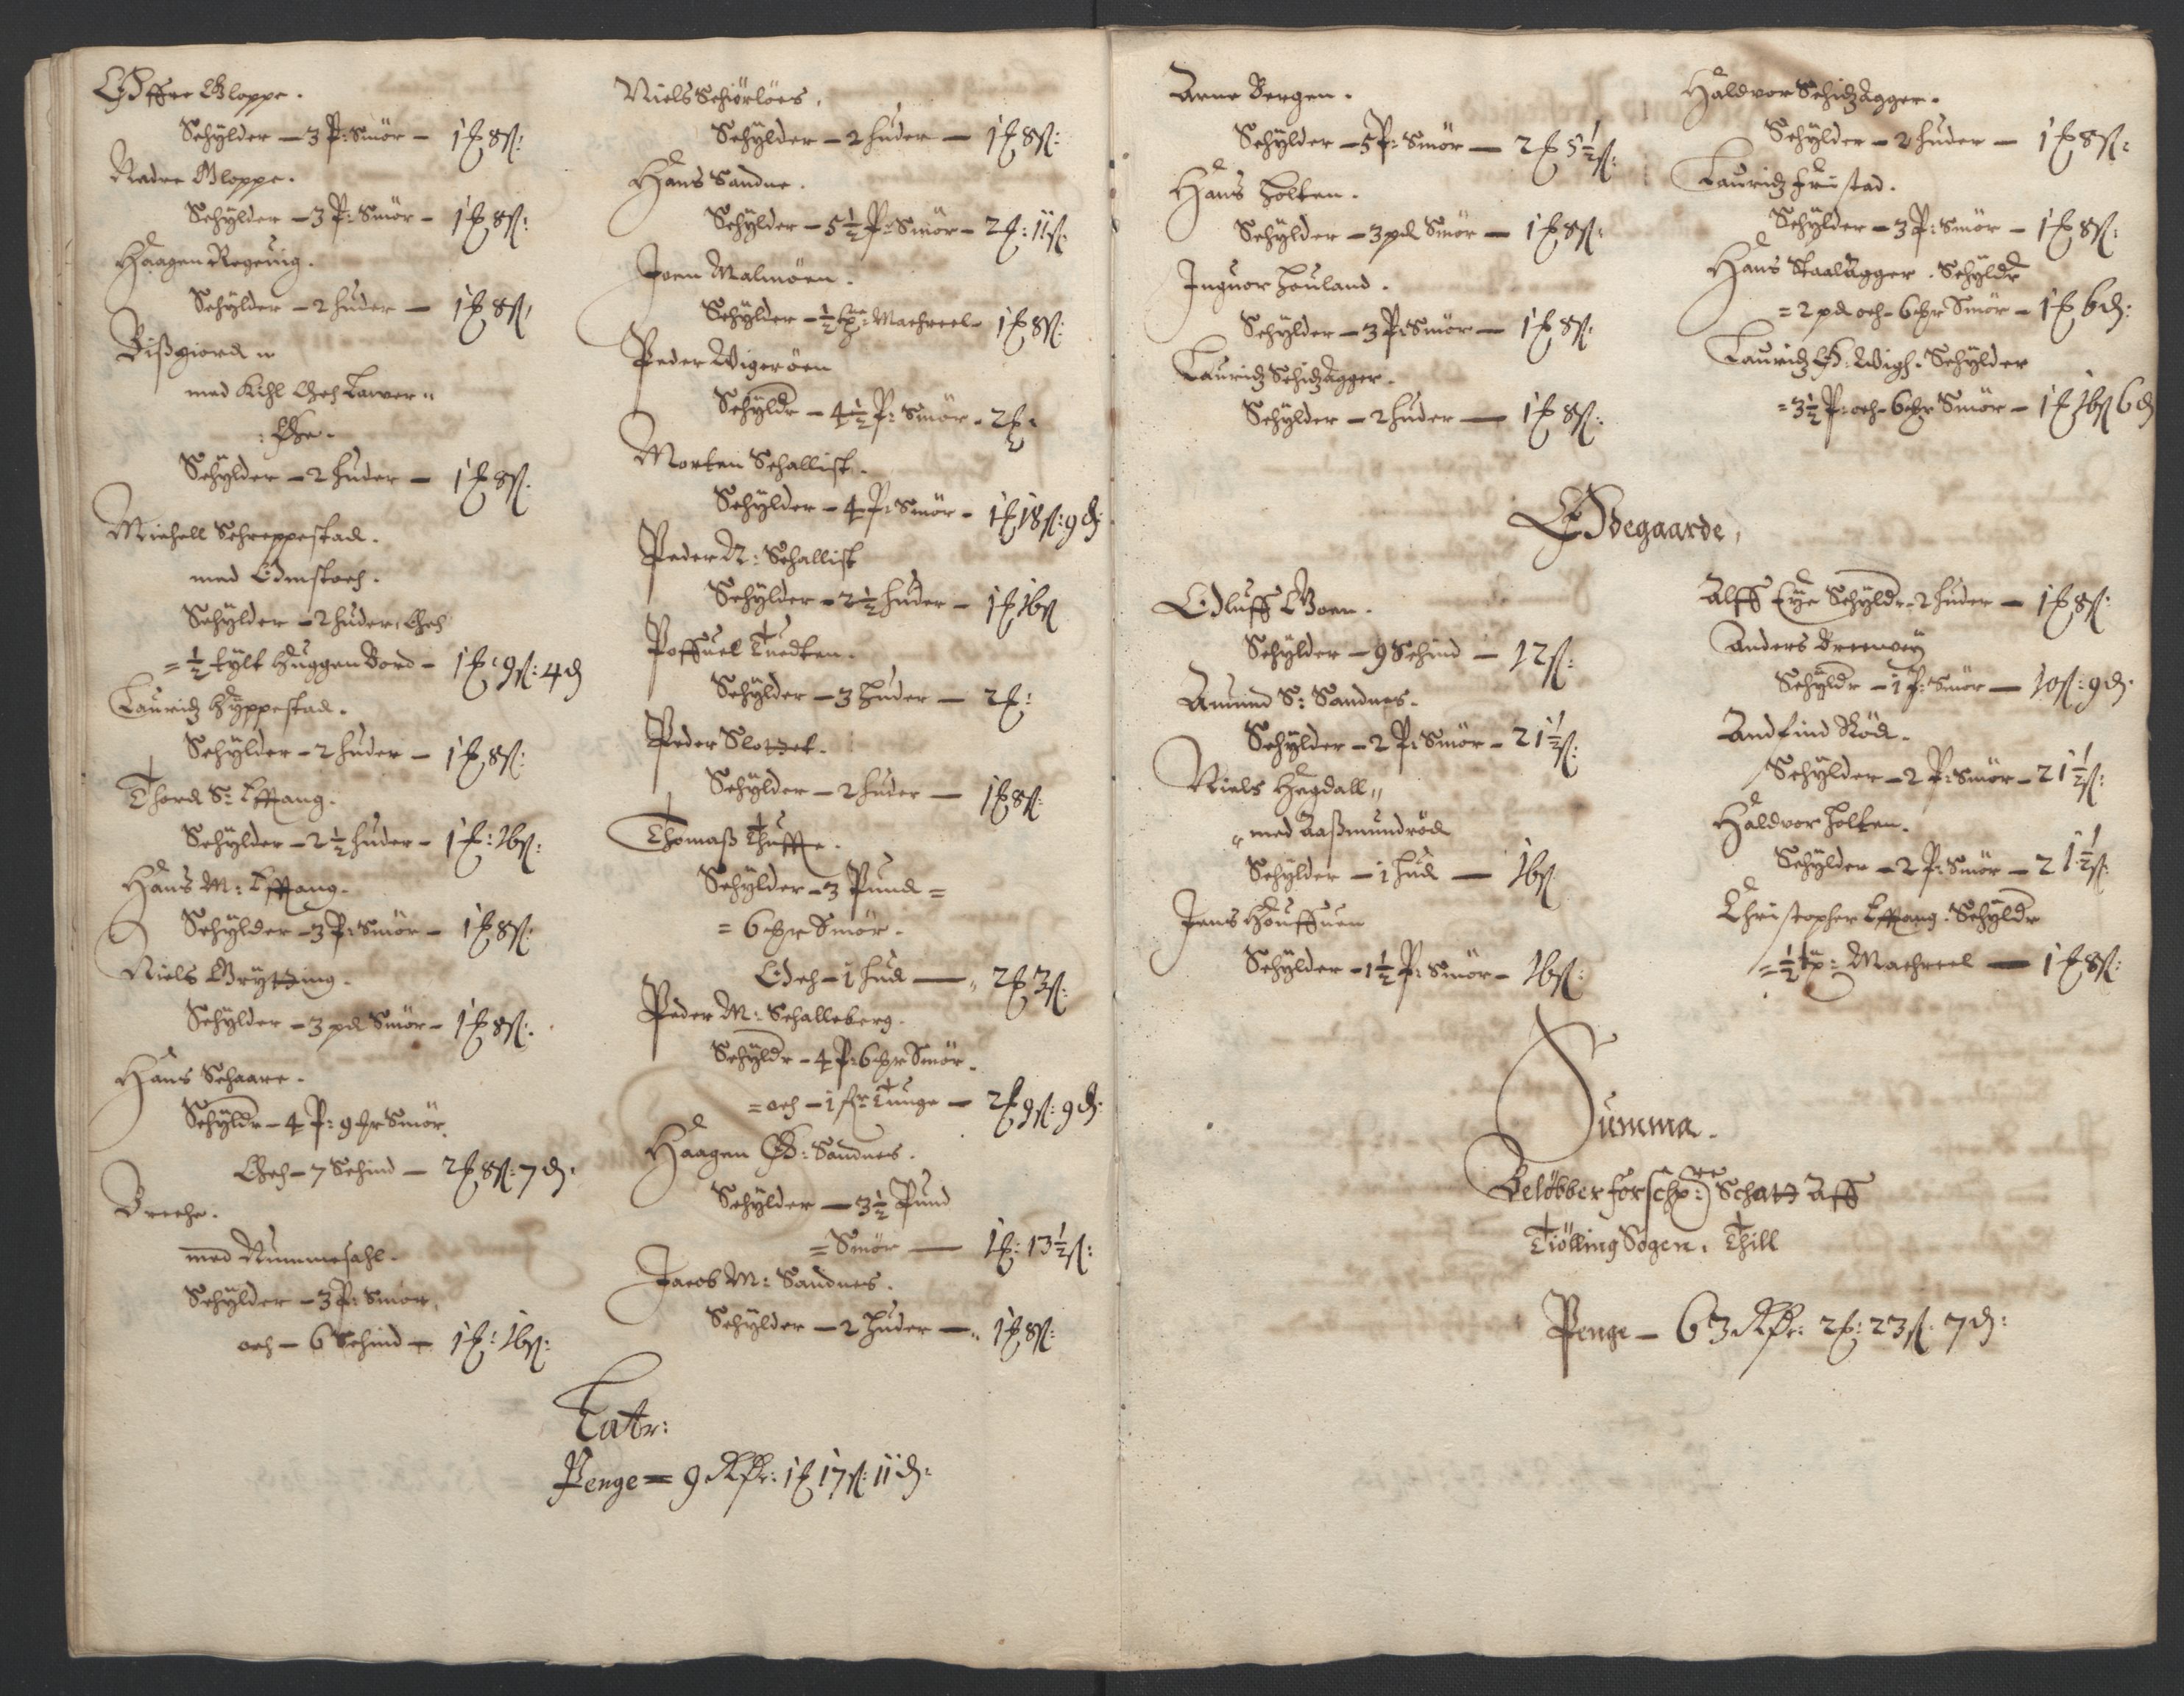 Øffre Gloppe.
Schylder – 3 P: Smör – 1 ℔ 8 ß:
Nedre Gloppe.
Schylder – 3 P: Smör – 1 ℔ 8 ß:
Haagen Regeuig.
Schylder – 2 huder – 1 ℔ 8 ß,
Bißgiord
med Kihl Och Lawer
Øhe.
Schylder – 2 huder – 1 ℔ 8 ß.
Michell Schreppestad.
med Omstoch.
Schylder – 2 huder, Och
= ½ tylt huggen Bord – 1 ℔: 9 ß: 4 d
Lauridz hyppestad.
Schylder – 2 huder – 1 ℔ 8 ß:
Thord S: Efftang.
Schylder – 2½ huder – 1 ℔: 16 ß:
Hans M: Efftang.
Schylder – 3 P: Smör – 1 ℔ 8 ß:
Niels Gryttting.
Schylder – 3 pd Smör – 1 ℔ 8 ß:
Hans Schaare.
Schyldr – 4 P: 9 hr Smör.
Och – 7 Schind – 2 ℔ 8 ß: 7 d:
Breche.
med Rummesahl.
Schylder – 3 P: Smör,
och – 6 Schind – 1 ℔: 16 ß:
Niels Schiörlöes,
Schylder – 2 huder – 1 ℔ 8 ß:
Hans Sandne.
Schylder – 5½ P: Smör – 2 ℔: 11 ß:
Joen Malmöen.
Schylder – ½ tp: Machreel – 1 ℔ 8 ß:
Peder Wigeröen
Schyldr – 4½ P: Smör – 2 ℔:
Morten Schallist.
Schylder – 4 P: Smör – 1 ℔ 18 ß: 9 d:
Peder N: Schallist
Schylder – 2½ huder – 1 ℔ 16 ß
Poffuel Tuedten.
Schylder – 3 huder – 2 ℔:
Peder Slottet.
Schylder – 2 huder – 1 ℔ 8 ß:
Thomaß Thuffte.
Schylder – 3 Pund =
= 6 hr Smör.
Och – 1 hud – 2 ℔ 3 ß:
Peder M: Schalleberg.
Schyldr – 4 P: 6 hr Smör.
= och – 1 fr Tunge – 2 ℔ 9 ß: 9 d:
Haagen G: Sandnes.
Schylder – 3½ Pund
= Smör – 1 ℔: 13½ ß:
Jacob M: Sandnes.
Schylder – 2 huder – 1 ℔ 8 ß:
Latr:
Penge = 9 Rdr: 1 ℔ 17 ß: 11 d:
Arne Bergen.
Schylder – 5 P: Smör – 2 ℔ 5½ ß:
Hans holten.
Schylder – 3 pd Smör – 1 ℔ 8 ß:
Inguor houland.
Schylder – 3 P: Smör – 1 ℔ 8 ß:
Lauridz Schidzagger.
Schylder – 2 huder – 1 ℔ 8 ß:
Haldvor Schidzagger.
Schylder – 2 huder – 1 ℔ 8 ß:
Lauridz fristad.
Schylder – 3 P: Smör – 1 ℔ 8 ß:
Hans Staalagger. Schyldr
= 2 pd och – 6 hr Smör – 1 ℔ 6 d:
Lauridz G: Wigh. Schylder
= 3½ P: och – 6 hr Smör – 1 ℔ 16 ß 6 d
Ødegaarde,
Oluff Goen.
Schylder – 9 Schind – 12 ß:
Amund S: Sandnes.
Schylder – 2 P: Smör – 21½ ß:
Niels Hagdall
med Aaßmundröd
Schylder – 1 hud – 16 ß
Jens Houffuen
Schylder – 1½ P: Smör – 16 ß:
Alff Eye Schyldr – 2 huder – 1 ℔ 8 ß:
Anders Breewey
Schyldr – 1 P: Smör – 10 ß: 9 d:
Andfind Röd.
Schylder – 2 P: Smör – 21½ ß:
Haldvor holten.
Schylder – 2 P: Smör – 21½ ß:
Christopher Efftang. Schyldr
= ½ tp: Machreel – 1 ℔ 8 ß:
Summa.
Belöbber forschr: Schatt Aff
Tiölling Sogen. Thill
Penge – 63 Rdr: 2 ℔: 23 ß: 7 d: